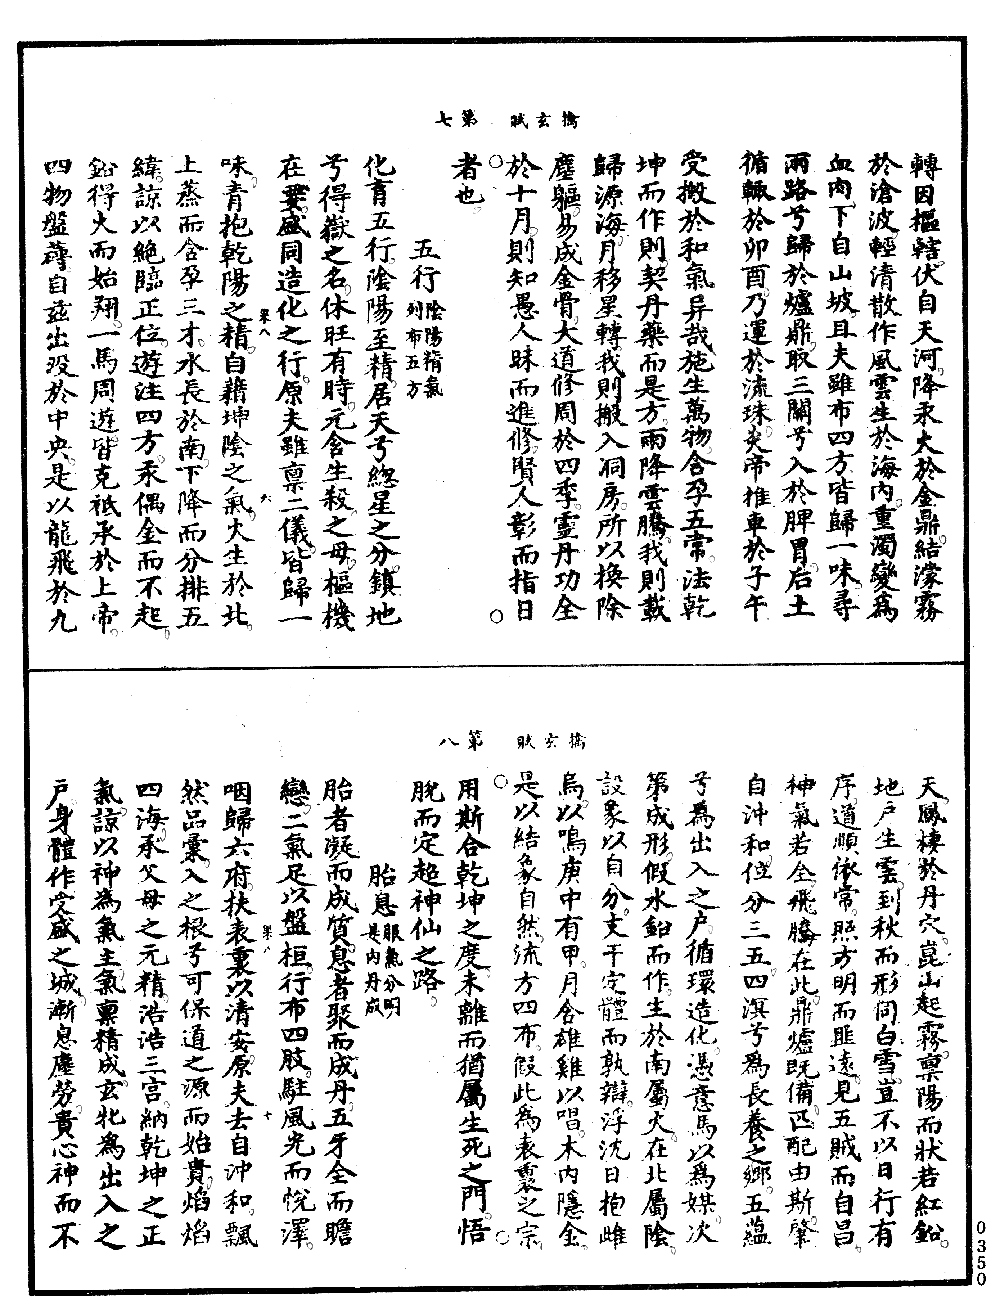 擒玄賦　第七
轉因樞轄伏自天河降汞大於金鼎結濛霧
於滄波輕清散作風雲生於海內重濁變爲
血肉下自山坡且夫雖布四方皆歸一味尋
兩路兮歸於爐鼎取三關兮入於脾胃后土
循轍於卯酉乃運於流珠炎帝推車於子午
受搬於和氣异哉施生萬物含孕五常法乾
坤而作則契丹藥而是方雨降雲騰我則載
歸源海月移星轉我則搬入洞房所以換除
塵軀易成金骨大道修周於四季靈丹功全
於十月則知愚人昧而進修賢人彰而指日
者也
五行陰陽精氣
列布五方
化育五行陰陽至精居天兮緫星之分鎮地
兮得嶽之名休旺有時元含生殺之母樞機
在要盛同造化之行原夫雖禀二儀皆歸一
味青抱乾陽之精自藉坤陰之氣火生於北
上蒸而含孕三才水長於南下降而分排五
緯諒以絶臨正位遊注四方汞偶金而不起
鉛得火而始翔一馬周遊皆克祇承於上帝
四物盤薄自茲出没於中央是以龍飛於九
擒玄賦　第八
天鳳棲於丹穴崑山起霧禀陽而狀若紅鉛
地户生雲到秋而形同白雪豈不以日行有
序道順依常照方明而匪遠見五賊而自昌
神氣若全飛騰在此鼎爐既備匹配由斯肇
自沖和位分三五四溟兮爲長養之鄉五藴
兮爲出入之户循環造化憑意馬以爲媒次
第成形假水鉛而作生於南屬火在北屬陰
設象以自分支干定體而孰辯浮沈日抱雌
烏以鳴庚中有甲月含雄雞以唱木内隱金
是以結象自然流方四布假此爲表裏之宗
用斯合乾坤之度未離而猶屬生死之門悟
脫而定超神仙之路
胎息服氣分明
是内丹成
胎者凝而成質息者聚而成丹五牙全而瞻
戀二氣足以盤桓行布四肢駐風光而悅澤
咽歸六府扶表裏以清安原夫去自沖和飄
然品彙入之根兮可保道之源而始貴焰焰
四海承父母之元精浩浩三宮納乾坤之正
氣諒以神爲氣主氣禀精成玄牝爲出入之
户身體作受盛之城漸息塵勞貴心神而不
0350